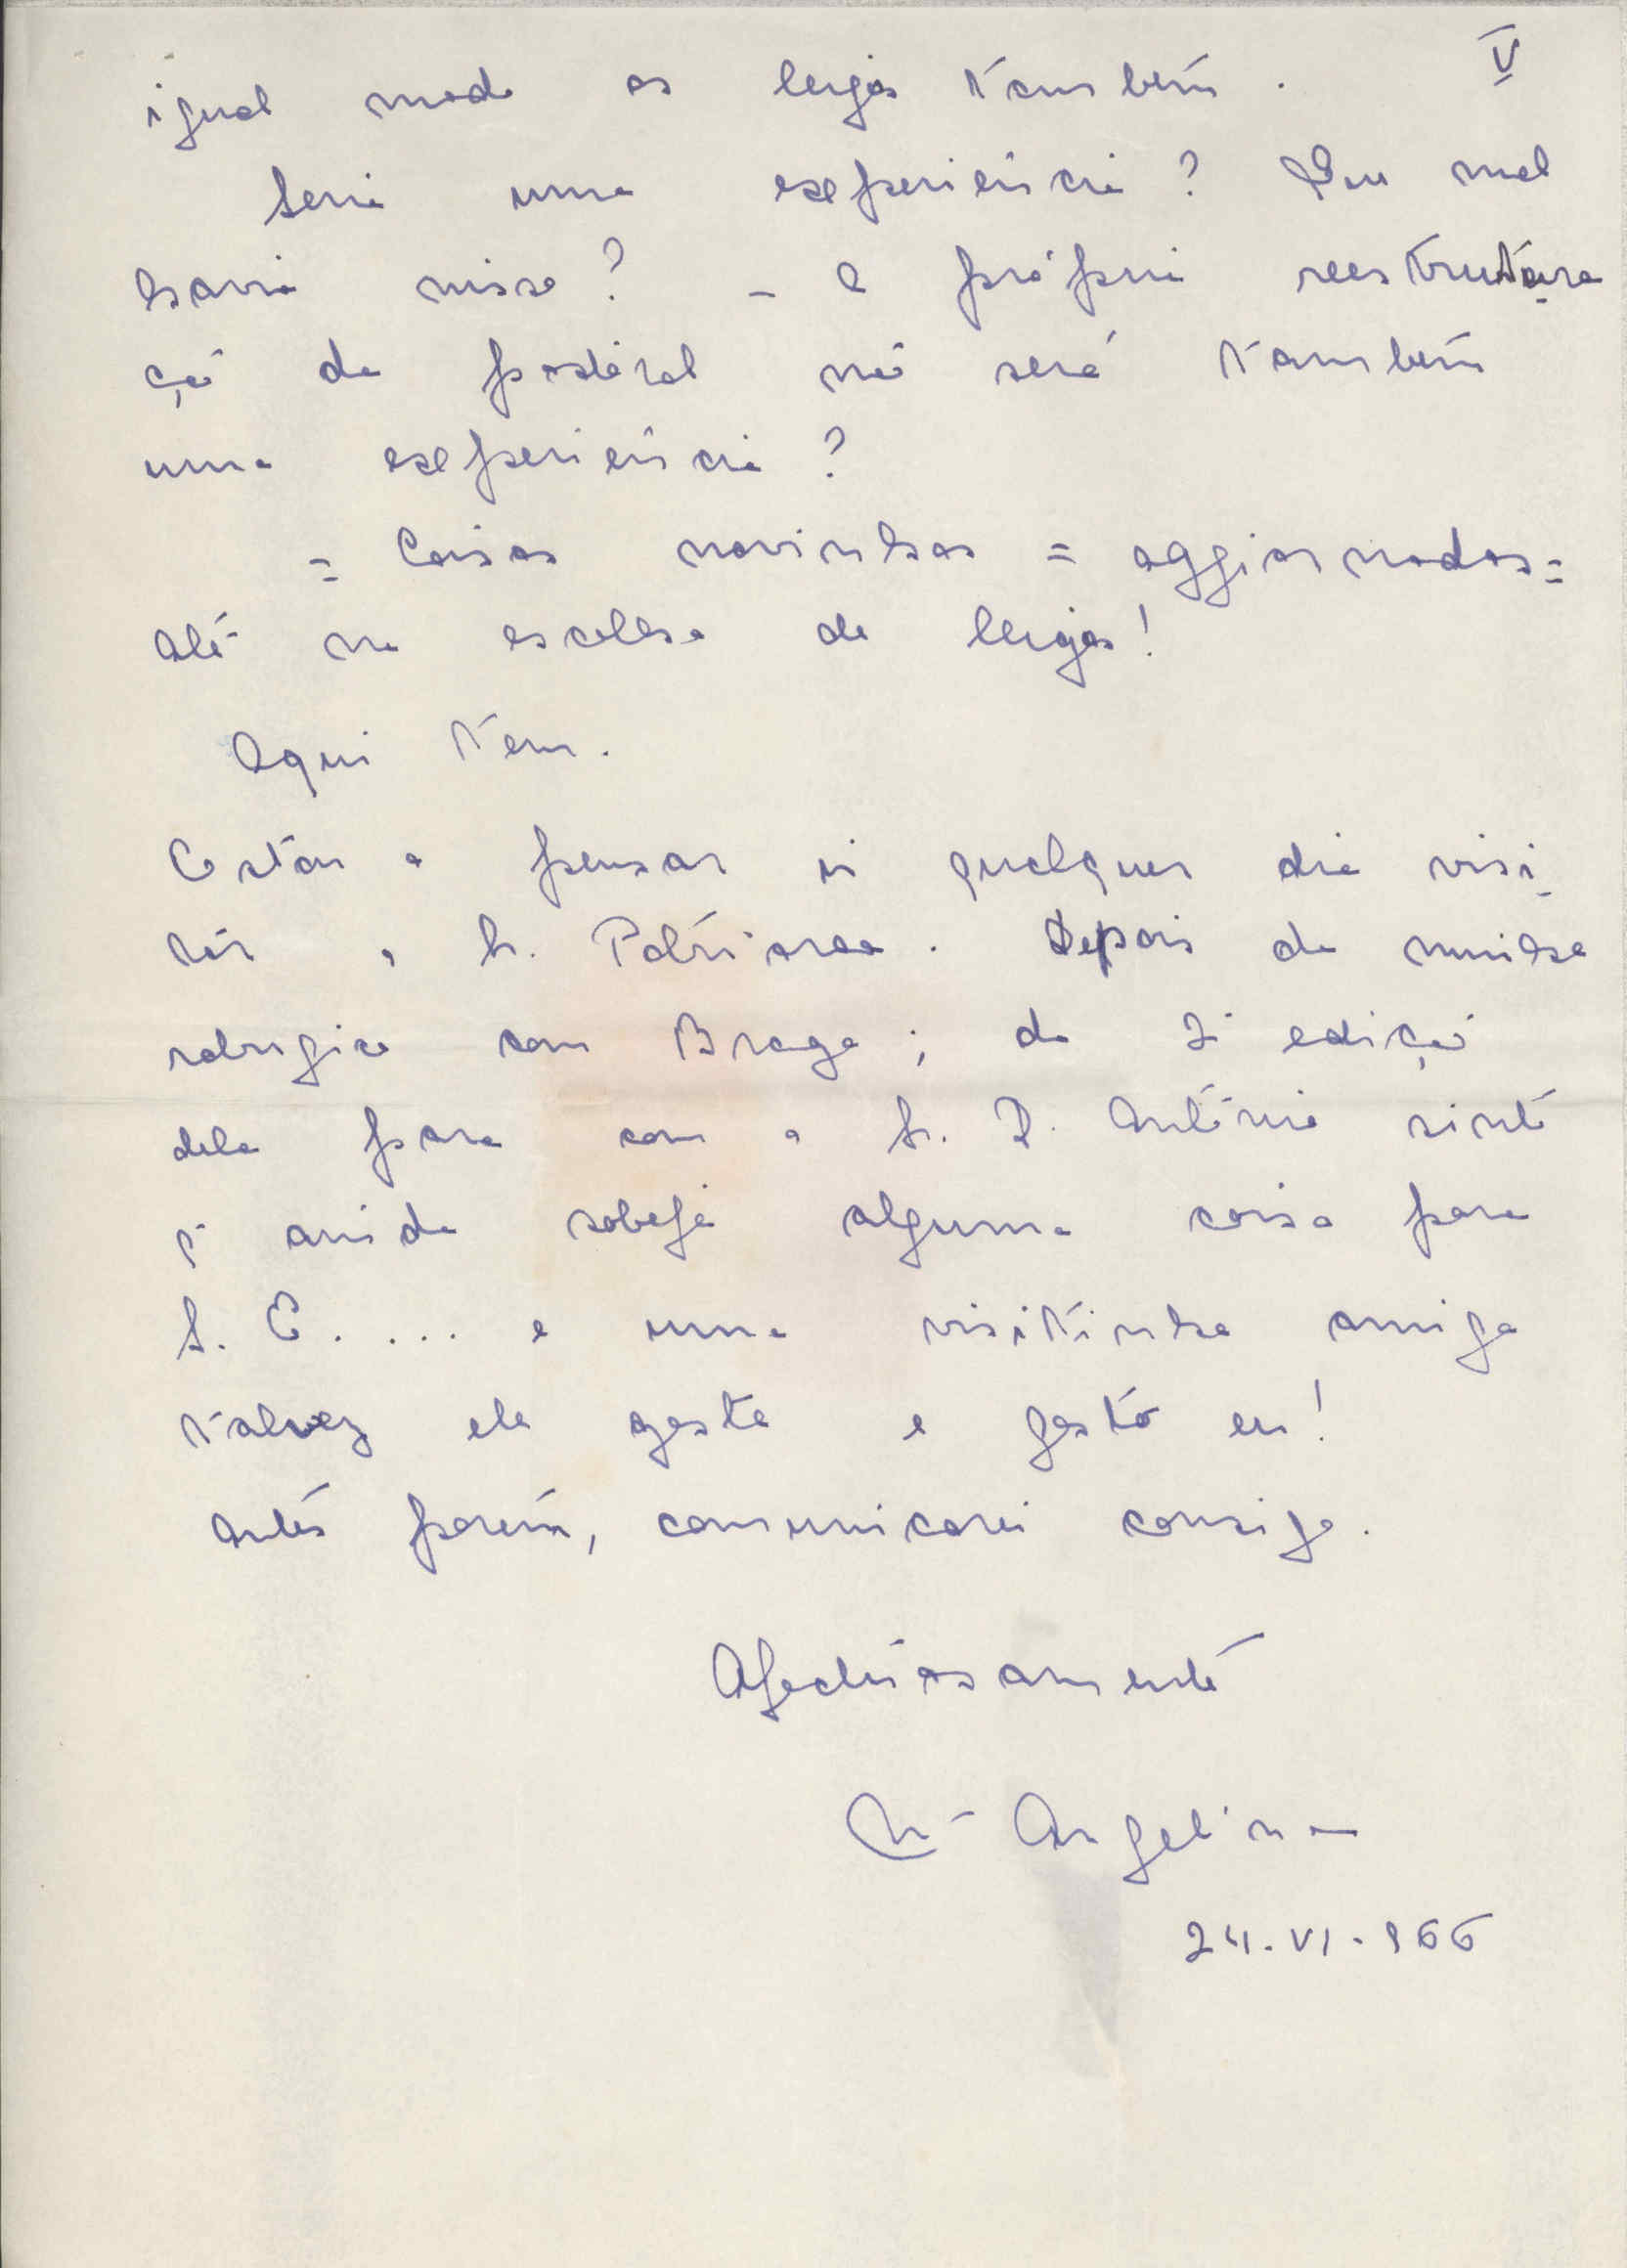 V
igual modo os leigos também.
Seria uma experiência? Que mal
havia nisso? - A própria reestrutura
ção da pastoral não será também
uma experiência?
= Coisas novinhas = aggiornadas =
até na escolha de leigos!
Aqui tem.
Estou a pensar ir qualquer dia visi
tar o Sr. Patriarca. Depois da minha
rabugice com Braga; da 2ª edição
dela para com o Sr. D. António sinto
q ainda sobeja alguma coisa para
S. E. ... e uma visitinha amiga
talvez ele goste e gosto eu!
Antes porém, comunicarei consigo.
Afectuosamente
Mª Angelina
24.VI.966